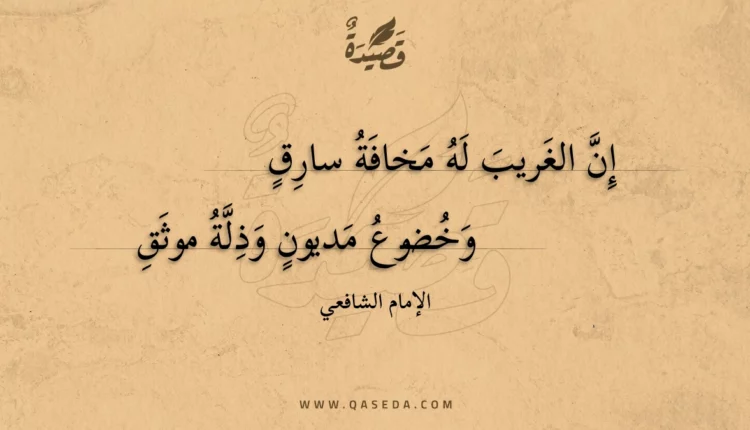 قَصِيدَةٌ
إِنَّ الغَريبَ لَهُ مَخافَةُ سارِقٍ
وَخُضوعُ مَديونٍ وَذِلَّةُ موثَقِ
الإمام الشافعي
WWW.QASEDA.COM